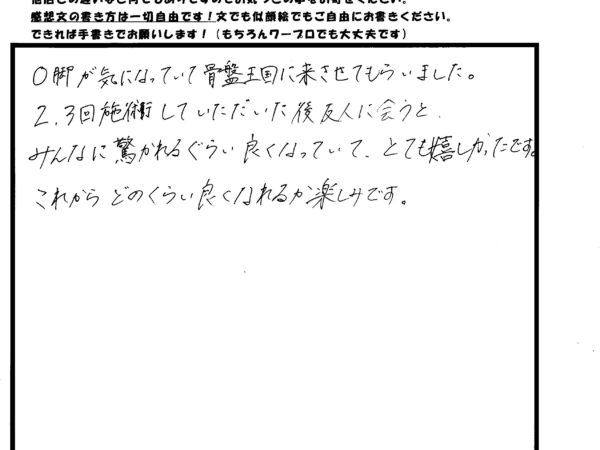 感想文の書き方は一切自由です！文でも似顔絵でもご自由にお書きください。
できれば手書きでお願いします！（もちろんワープロでも大丈夫です）
O脚が気になっていて骨盤王国に来させてもらいました。
2、3回施術していただいた後友人に会うと、
みんなに驚かれるぐらい良くなっていて、とても嬉しかったです。
これからどのくらい良くなれるか楽しみです。